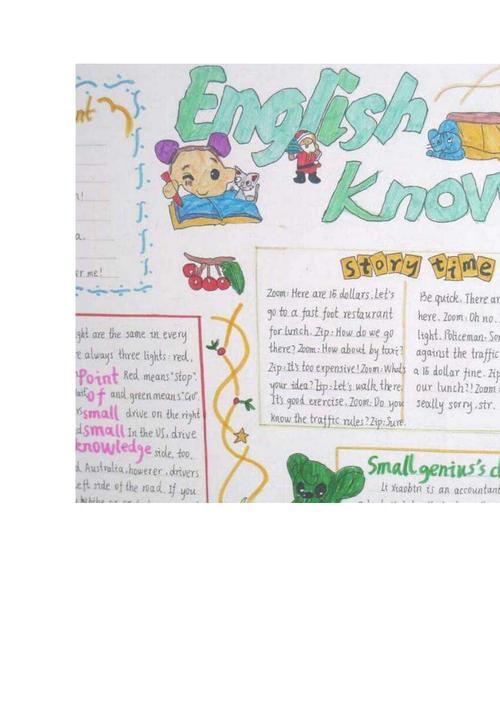 English
Know
nt
a.
er me!
story time
Zoom: Here are 16 dollars. Let's
go to a fast foot restaurant
for lunch. Zip: How do we go
there? Zoom: How about by taxi?
Zip: It's too expensive! Zoom: What's
your idea? Zip: Let's walk there.
It's good exercise. Zoom: Do you
know the traffic rules? Zip: Sure.
Be quick. There ar
here. Zoom: Oh no.
light. Policeman: Sor
against the traffic
a 16 dollar fine. Zip
our lunch?! Zoom:
seally sorry, str.
ght are the same in every
e always three lights: red,
Point Red means "Stop".
of and green means "Go".
small drive on the right
small In the US, drive
knowledge side, too.
Australia, however, drivers
eft side of the road. If you
Small genius's d
Li Xiaobin is an accountan